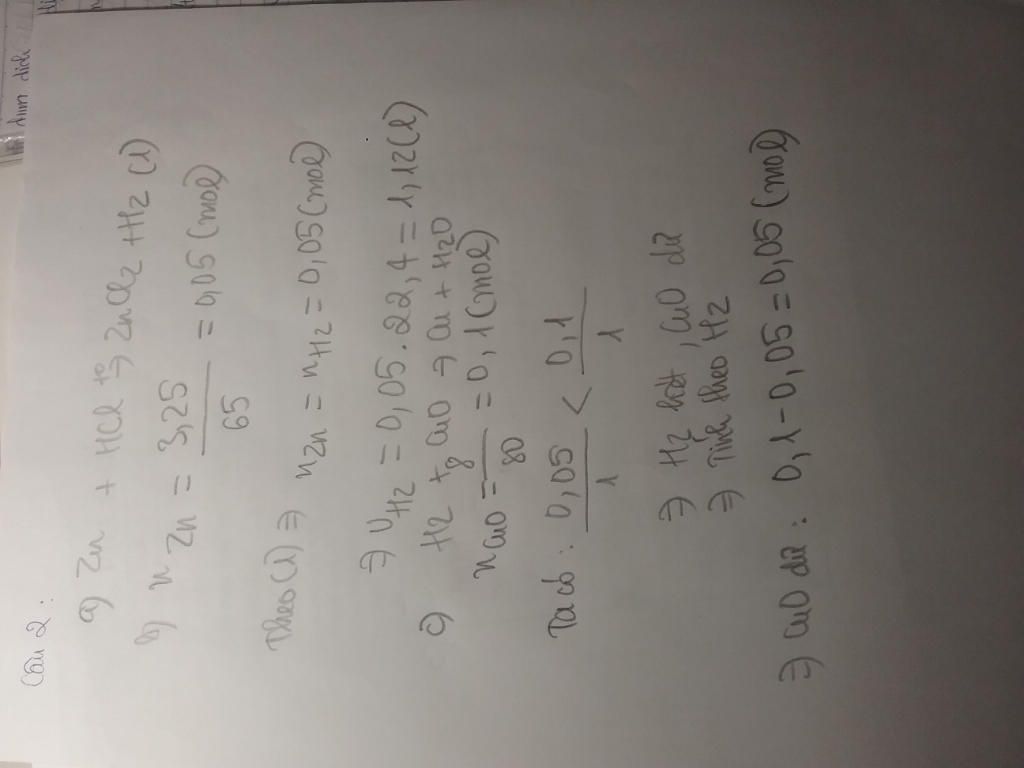 Câu 2 :
a) Zn + HCl t° → ZnCl2 + H2 (1)
b) n Zn = 3,25 / 65 = 0,05 (mol)
Theo (1) ⇒ nZn = nH2 = 0,05 (mol)
⇒ VH2 = 0,05 . 22,4 = 1,12 (l)
c) H2 + CuO → Cu + H2O
nCuO = 8 / 80 = 0,1 (mol)
Ta có : 0,05 / 1 < 0,1 / 1
⇒ H2 hết, CuO dư
⇒ Tính theo H2
⇒ CuO dư : 0,1 - 0,05 = 0,05 (mol)